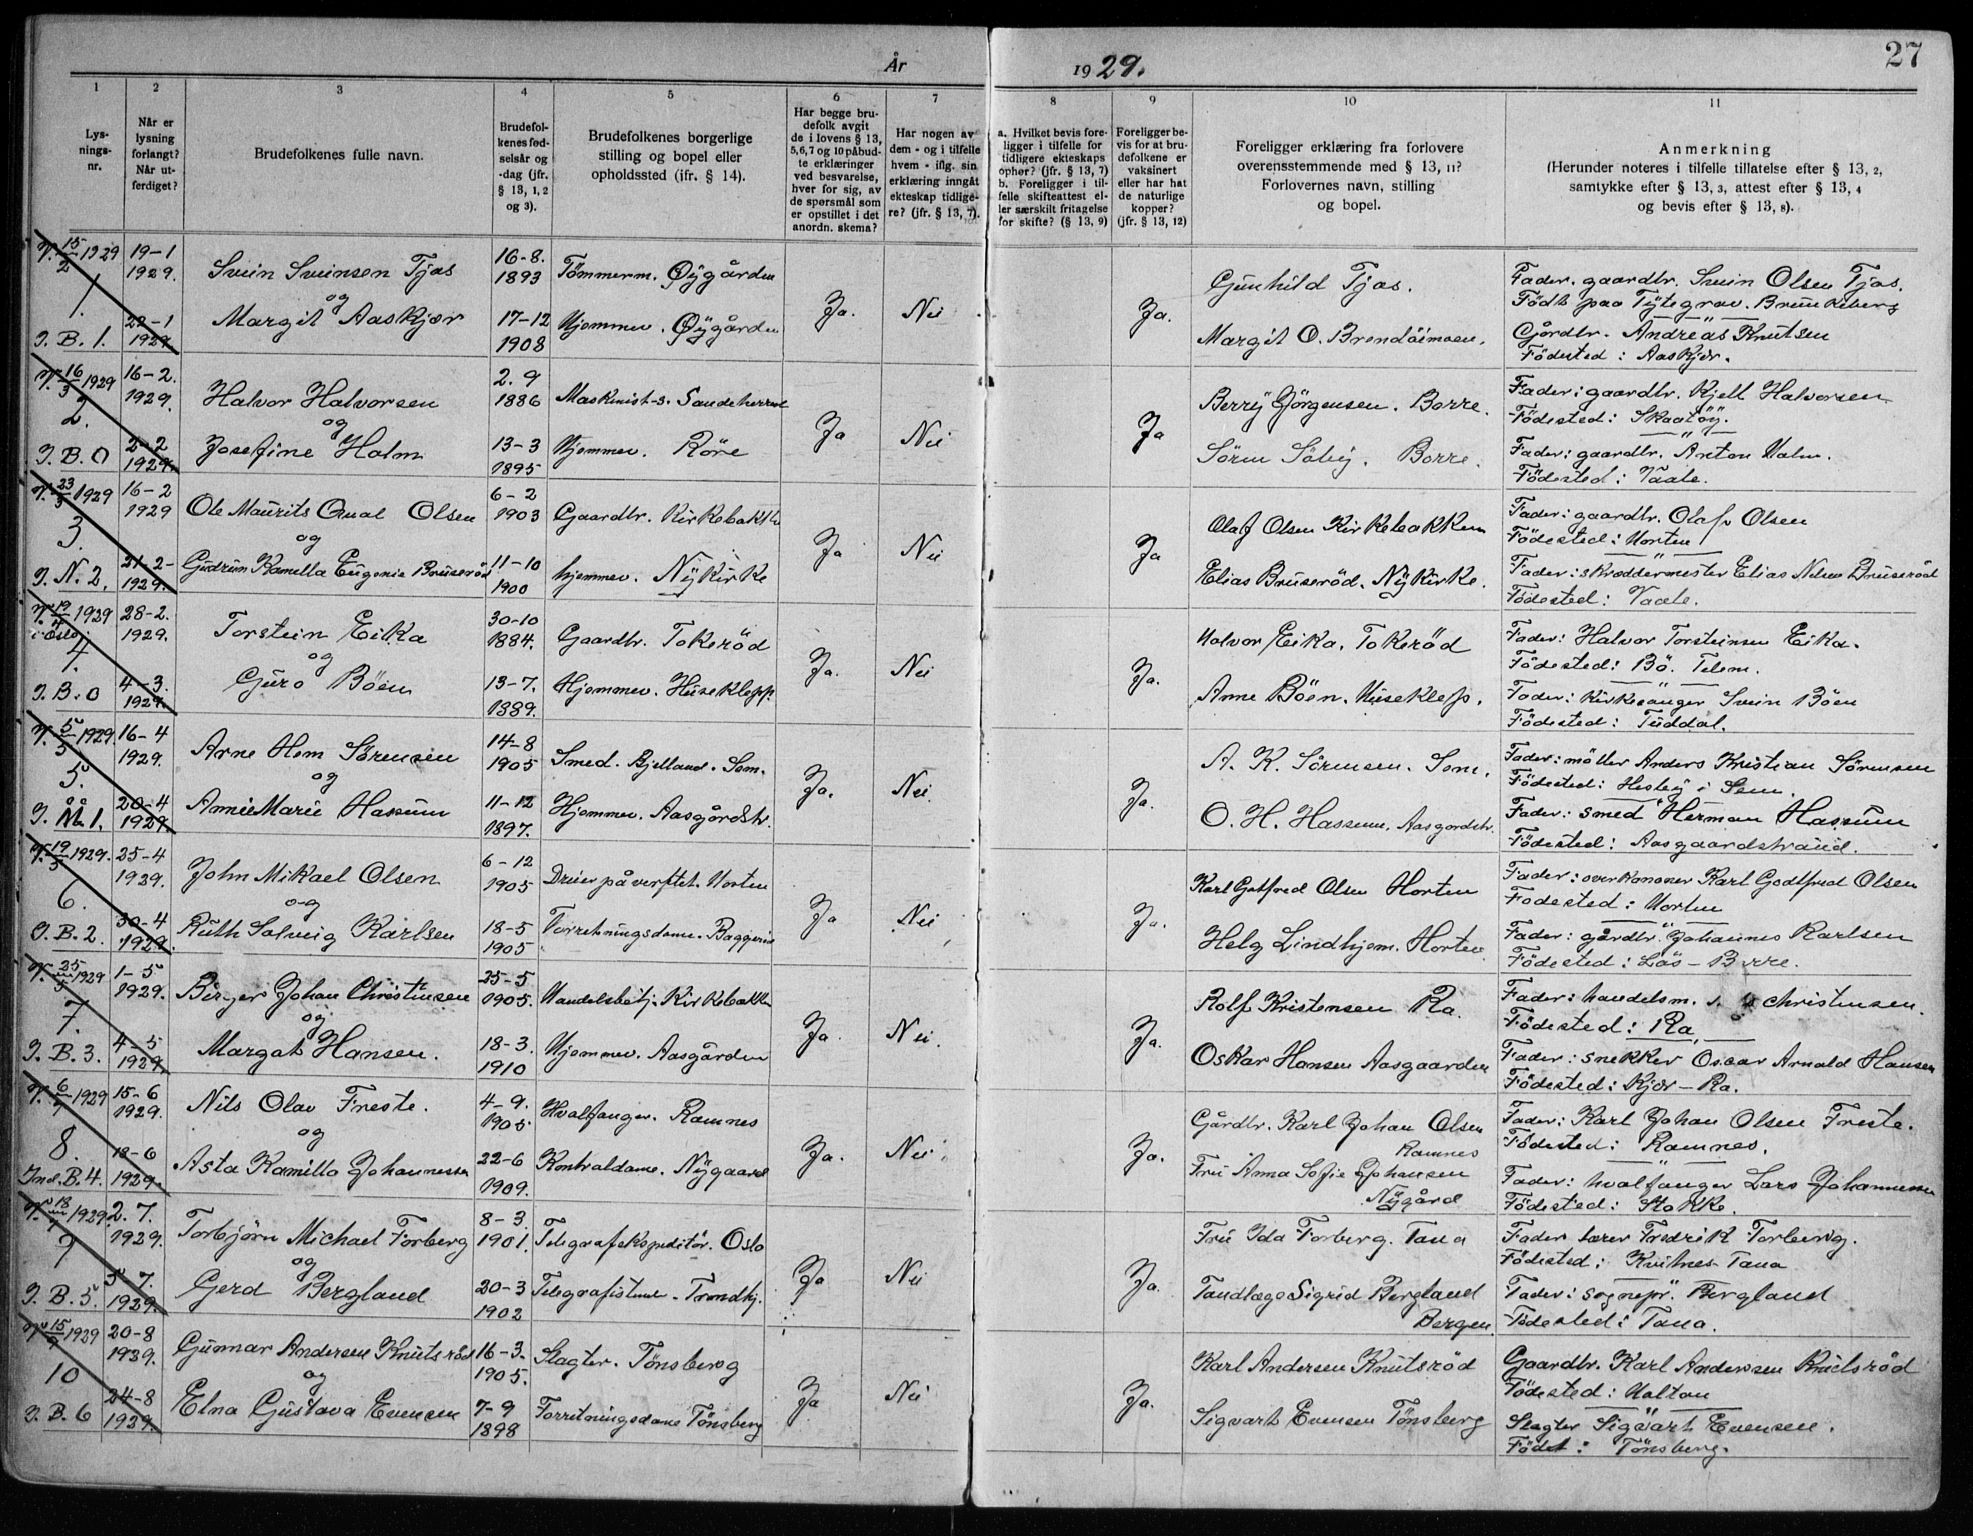 27
År 1929.
1 2 3 4 5 6 7 8 9 10 11
Lysningsnr.
Når er lysning forlangt? Når utferdiget?
Brudefolkenes fulle navn.
Brudefolkenes fødselsår og -dag (jfr. § 13, 1, 2 og 3).
Brudefolkenes borgerlige stilling og bopel eller opholdssted (jfr. § 14).
Har begge brudefolk avgit de i lovens § 13, 5, 6, 7 og 10 påbudte erklæringer ved besvarelse, hver for sig, av de spørsmål som er opstillet i det anordn. skema?
Har nogen av dem - og i tilfelle hvem - iflg. sin erklæring inngåt ekteskap tidligere? (jfr. § 13, 7).
a. Hvilket bevis foreligger i tilfelle for tidligere ekteskaps ophør? (jfr. § 13, 7) b. Foreligger i tilfelle skifteattest eller særskilt fritagelse for skifte? (§ 13, 9)
Foreligger bevis for at brudefolkene er vaksinert eller har hat de naturlige kopper? (jfr. § 13, 12)
Foreligger erklæring fra forlovere overensstemmende med § 13, 11? Forlovernes navn, stilling og bopel.
Anmerkning (Herunder noteres i tilfelle tillatelse efter § 13, 2, samtykke efter § 13, 3, attest efter § 13, 4 og bevis efter § 13, 8).
V. 15/2 1929 19-1 1929. Svein Sveinsen Tjas 16-8. 1893 Tömmerm. Øygården Gunhild Tjas. Fader. gaardbr. Svein Olsen Tjas.
Födt paa Tytegrav. Brunkeberg
1. og Ja. Nei Ja.
J. B. 1. 22-1 1929. Margit Aaskjær 17-12 1908 Hjemmev. Øygården Margit O. Brendåimoen. Gårdbr. Andreas Knutsen
Födested: Aaskjær.
V. 16/3 1929 16-2. 1929. Halvor Halvorsen 2. 9 1886 Maskinist-s. Sandeherred Berry Jörgensen. Borre. Fader: gaardbr. Kjell Halvorsen
Födested: Skaatöy.
2. og Ja Nei Ja
J. B. 0 2-2 1929. Josefine Holm 13-3 1895 Hjemmev. Röre Sören Söby. Borre. Fader: gaardbr. Anton Holm.
Födested: Vaale.
V. 23/3 1929 16-2 1929 Ole Maurits Qual Olsen 6-2 1903 Gaardbr. Kirkebakken Olaf Olsen Kirkebakken Fader: gaardbr. Olaf Olsen
Födested: Horten
3. og Ja Nei Ja
J. N. 2. 21-2- 1929. Gudrun Kamella Eugenie Bruseröd 11-10 1900 hjemmev. Nykirke Elias Bruseröd. Nykirke. Fader: skreddermester Elias Nelsen Bruseröd
Födested: Vaale.
V. 19/4 1929 i Oslo. 28-2. 1929. Torstein Eika 30-10 1884. Gaardbr. Tokeröd Halvor Eika. Tokeröd Fader: Halvor Torsteinsen Eika.
Födested: Bö. Telem.
4. og Ja. Nei Ja.
J. B. 0 4-3. 1929. Guro Böen 13-7. 1889. Hjemmev. Huseklepp. Anne Böen. Huseklep. Fader: Kirkesanger Svein Böen
Födested: Tuddal.
V. 5/5 1929. 16-4 1929. Arne Hem Sörensen 14-8 1905 Smed. Bjelland. Sem. A. K. Sörensen. Sem. Fader: möller Anders Kristian Sörensen
Födested: Hesby i Sem.
5. og Ja. Nei. Ja.
J. Å. 1. 20-4 1929. Annie Marie Hassum 11-12 1897. Hjemmev. Aasgårdstr. O. H. Hassum. Aasgordstr. Fader: smed Herman Hassum
Födested: Aasgaardstrand.
V. 19/5 1929. 25-4 1929. John Mikael Olsen 6-12 1905 Dreier på verftet. Horten Karl Gotfred Olsen Horten Fader: overkanoner Karl Godtfred Olsen
Födested: Horten
6. og Ja Nei Ja.
J. B. 2. 30-4 1929. Ruth Solveig Karlsen 18-5 1905 Forretningsdame. Baggerön Helg Lindhjem. Horten Fader: gårdbr. Johannes Karlsen
Födested: Lös - Borre.
V. 25/5 1929 1-5 1929. Birger Johan Christensen 25-5 1905. Handelsbetj. Kirkebakken Rolf Kristensen Ra. Fader: handelsm. Christensen.
Födested: Ra
7. og Ja Nei. Ja.
J. B. 3. 4-5 1929. Margot Hansen. 18-3. 1910 Hjemmev. Aasgården Oskar Hansen Aasgaarden Fader: snekker Oscar Arnold Hansen
Födested: Kjær - Ra.
V. 6/7 1929 15-6 1929. Nils Olav Freste. 4-9. 1905. Hvalfanger. Ramnes Gårdbr. Karl Johan Olsen Ramnes Fader: Karl Johan Olsen Freste.
Födested: Ramnes.
8. og Ja. Nei. Ja.
Ind. B. 4. 18-6 1929. Asta Kamilla Johannessen 22-6 1909. Kontoldame. Nygaard Fru Anna Sofie Johansen Nygård Fader: hvalfanger Lars Johannessen
Födested: Stokke.
V. 13/7 1929. 2. 7. 1929. Torbjörn Michael Forberg 8-3. 1901. Telegrafekspeditör. Oslo Fru Ida Forberg. Tana Fader lærer Fredrik Forberg.
Födested: Kvitnes Tana
9 og Ja Nei Ja.
J. B. 5. 5 7. 1929. Gerd Bergland 20-3 1902 Telegrafistinne - Trondhj. Tandlæge Sigrid Bergland Bergen. Fader: sognepr. Bergland
Födested: Tana.
V. 15/9 1929 20-8 1929. Gunnar Andersen Knutsröd 16-3. 1905. Slagter. Tönsberg Karl Andersen Knutsröd Gaardbr. Karl Andersen Knutsröd
Födested: Halton
10 og Ja Nei Ja.
J. B. 6 24-8 1929. Elna Gustava Evensen 7-9 1898 Forretningsdame Tönsberg Sigvart Evensen Tönsberg Slagter Sigvart Evensen.
Födet: Tönsberg.